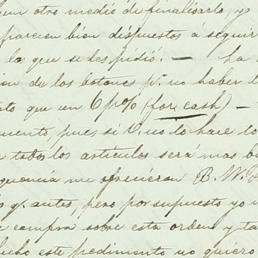 otro medio de finalisarlo, yo
parecian bien dispuestos a seguir
lo que se les pidió. — La
de los botones p. no haber
que un 6 p% (for cash) —
pues si V. no lo hace
todos los articulos será mas
me ofrecieran B. W.
y antes, pero por supuesto yo
compra sobre esta orden y
este pedimento no quiero